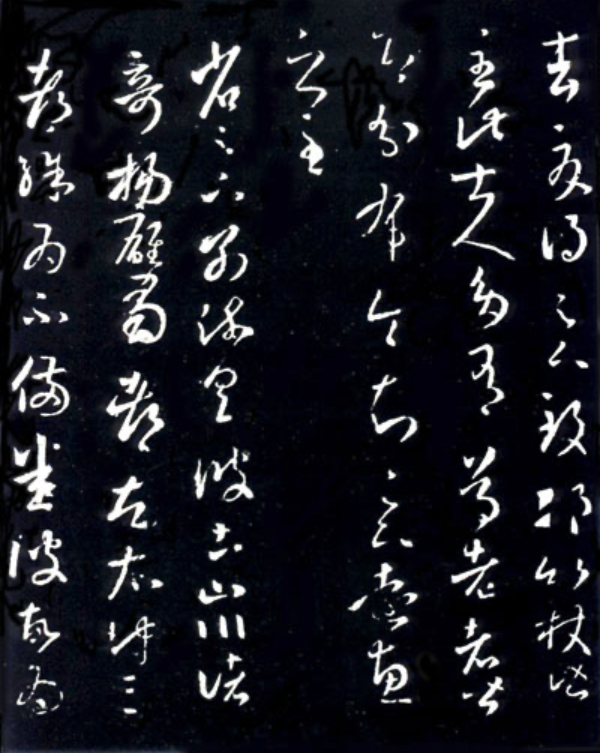 去夏得足下致邛竹杖皆
至此士人多有尊老者皆
即分布令知足下遠惠
之至
省足下別疏具彼土山川諸
奇楊雄蜀都左太沖三
都殊為不備悉彼故為